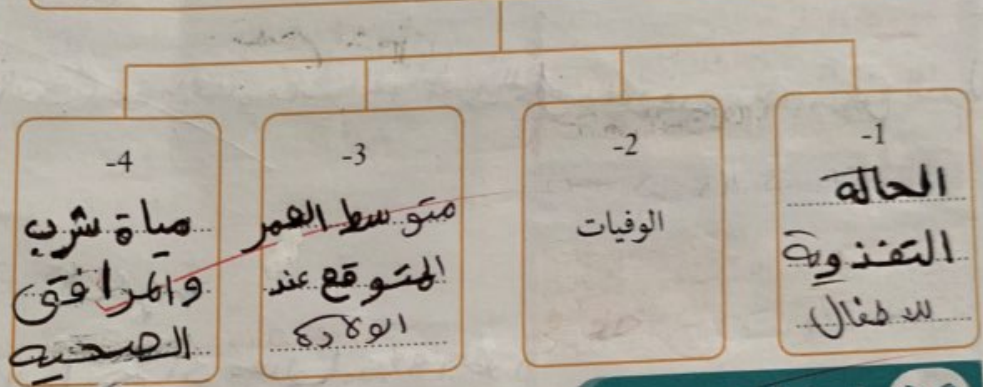 -1
الحاله
التغذوية
للاطفال
-2
الوفيات
-3
متوسط العمر
المتوقع عند
الولادة
-4
مياة شرب
والمرافق
الصحيه